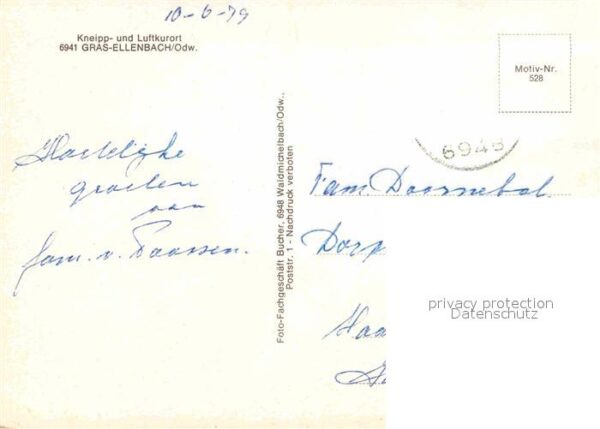 10-6-79
Kneipp- und Luftkurort
6941 GRAS-ELLENBACH/Odw.
Motiv-Nr.
528
6948
Hartelijke
groeten
van
fam. v. Baarsen.
Foto-Fachgeschäft Bucher, 6948 Waldmichelbach/Odw.,
Poststr. 1 - Nachdruck verboten
Fam. Doornebal.
Dorp
Haa
privacy protection
Datenschutz